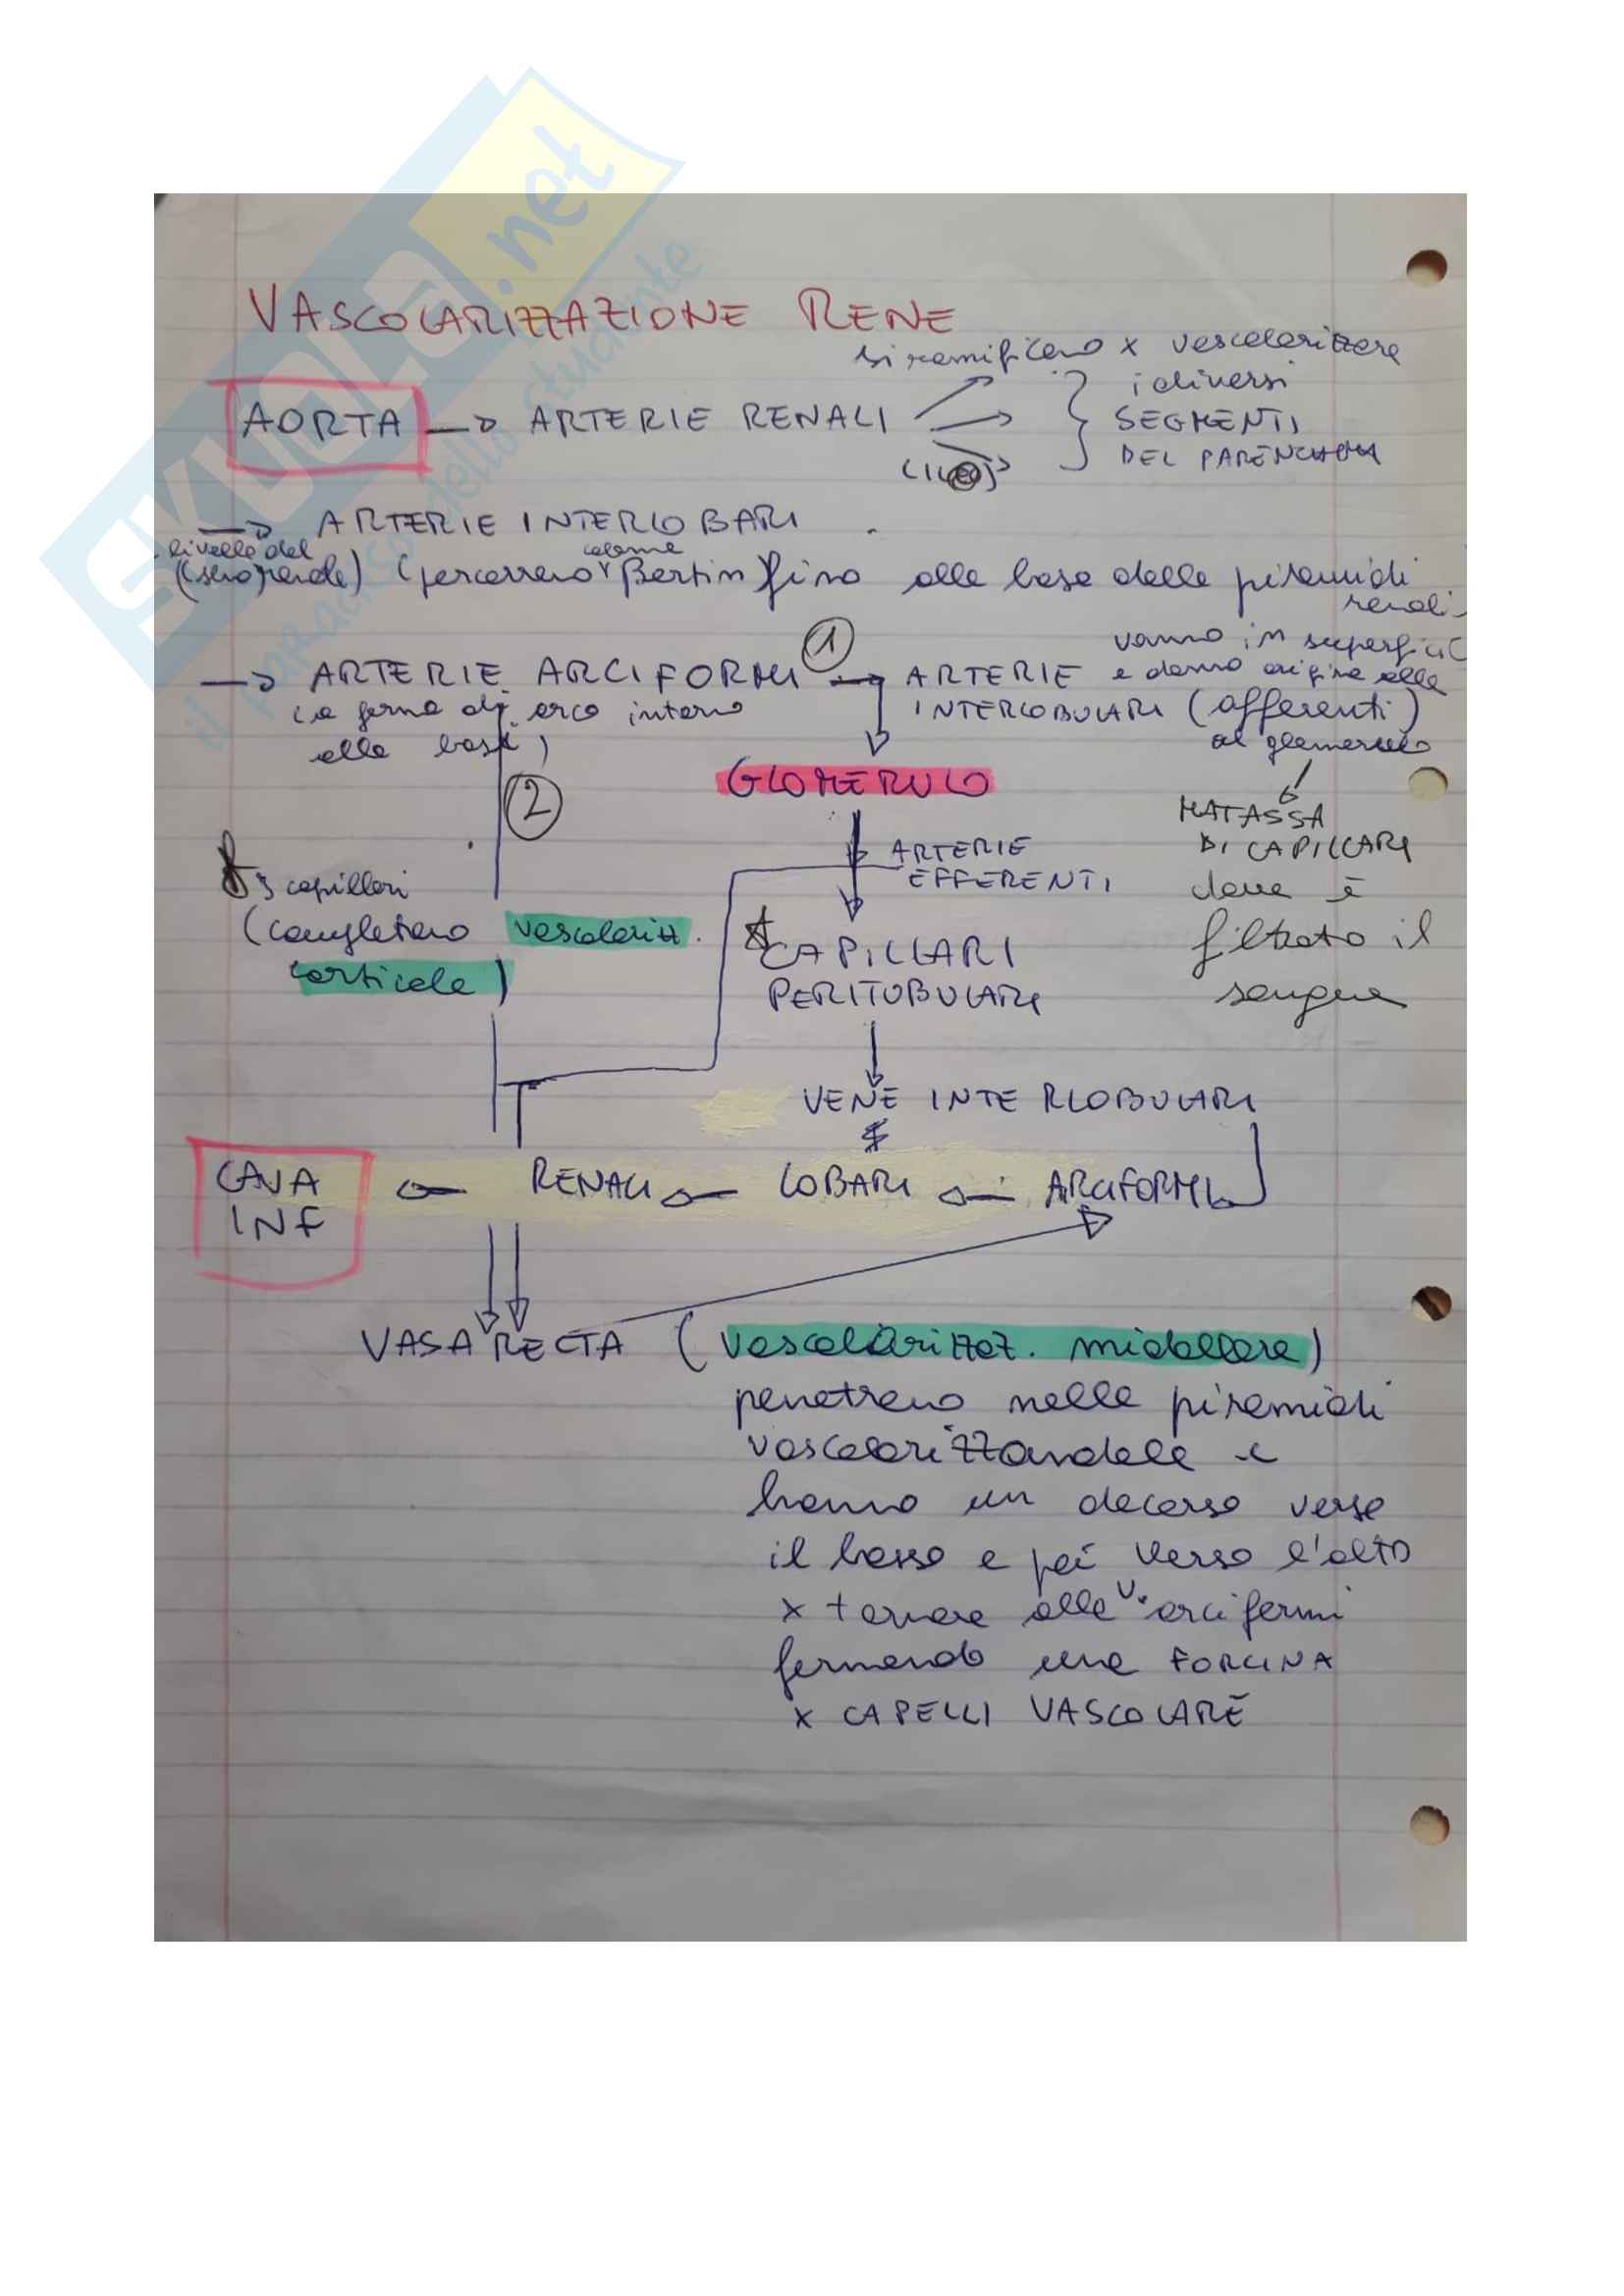 SKUOLA.net
il paradiso dello studente
VASCOLARIZZAZIONE RENE
si ramificano x vascolarizzare
i diversi
AORTA → ARTERIE RENALI → SEGMENTI
DEL PARENCHIMA
→ ARTERIE INTERLOBARI
livello del
(seno renale) (percorrono colonne Bertin) fino alla base delle piramidi
renali
1
vanno in superficie
→ ARTERIE ARCIFORMI → ARTERIE e danno origine alle
(a forma di arco intorno INTERLOBULARI (afferenti)
alla base) al glomerulo
GLOMERULO
2
MATASSA
DI CAPILLARI
dove è
filtrato il
sangue
ARTERIE
EFFERENTI
3 capillari
(completano vascolarizz.
corticale)
CAPILLARI
PERITUBULARI
VENE INTERLOBULARI
CAVA ← RENALI ← LOBARI ← ARCIFORMI
INF
VASA RECTA (vascolarizzaz. midollare)
penetrano nelle piramidi
vascolarizzandole e
hanno un decorso verso
il basso e poi verso l'alto
x tornare alle v. arciformi
formando una FORCINA
x CAPELLI VASCOLARE